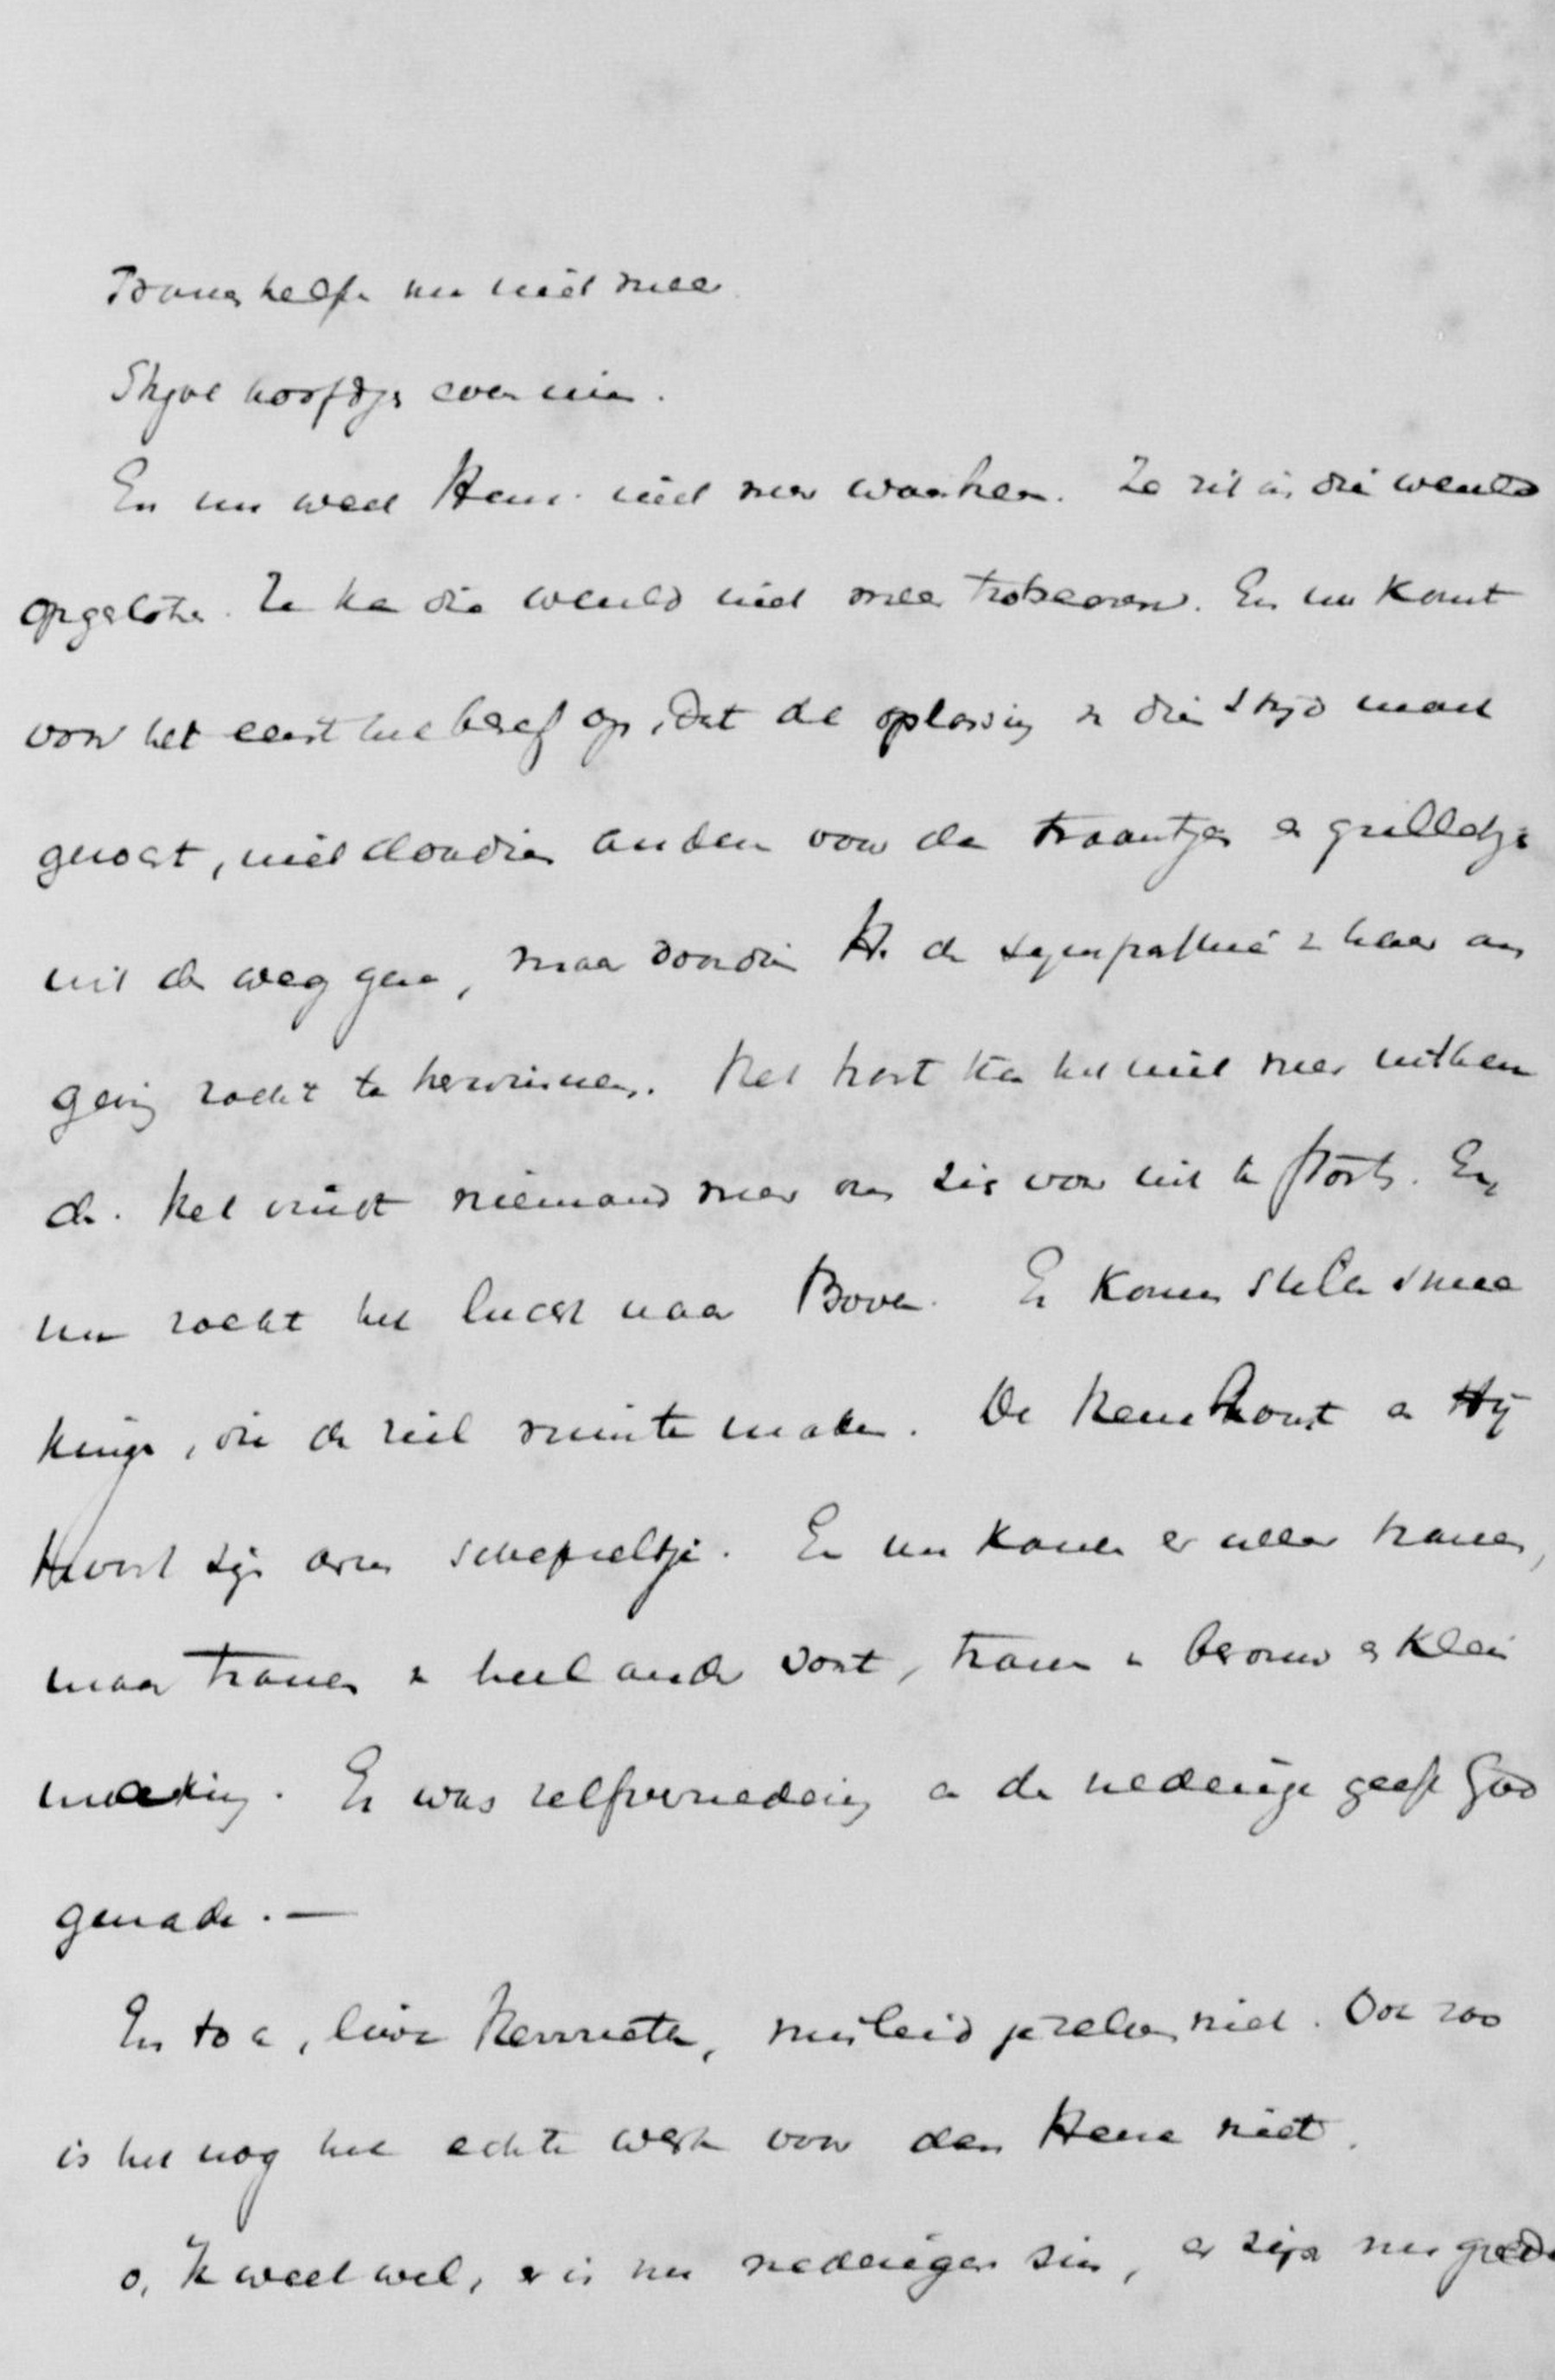 Tranen helpen nu niet meer
Stijve hoofdjes even min.
En nu weet Henr. niet meer waarheen. Ze zit in die wereld
opgesloten. Ze kan die wereld niet meer trotseeren. En nu komt
voor het eerst het besef op, dat de oplossing v die strijd moet
gezocht, niet doordien anderen voor de traantjes en grilletjes
uit de weg gaan, maar doordien H. de sympathie v haar om
geving zoekt te herwinnen. Het hart kan het niet meer uithou
den. Het vindt niemand meer om zich voor uit te storten. En
nu zoekt het lucht naar Boven. Er komen stille smee
kingen, die de ziel ruimte maken. De Heer hoort en Hij
verhoort zijn arm schepseltje. En nu komen er weer tranen,
maar tranen v heel ander soort, tranen v berouw en klein
making. Er was zelfvernedering en de nederige geeft God
genade. —
En toch, lieve Henriette, misleid je zelve niet. Ook zoo
is het nog het echte werk voor den Heere niet.
o, Ik weet wel, er is nu nederiger zin, er zijn nu goede